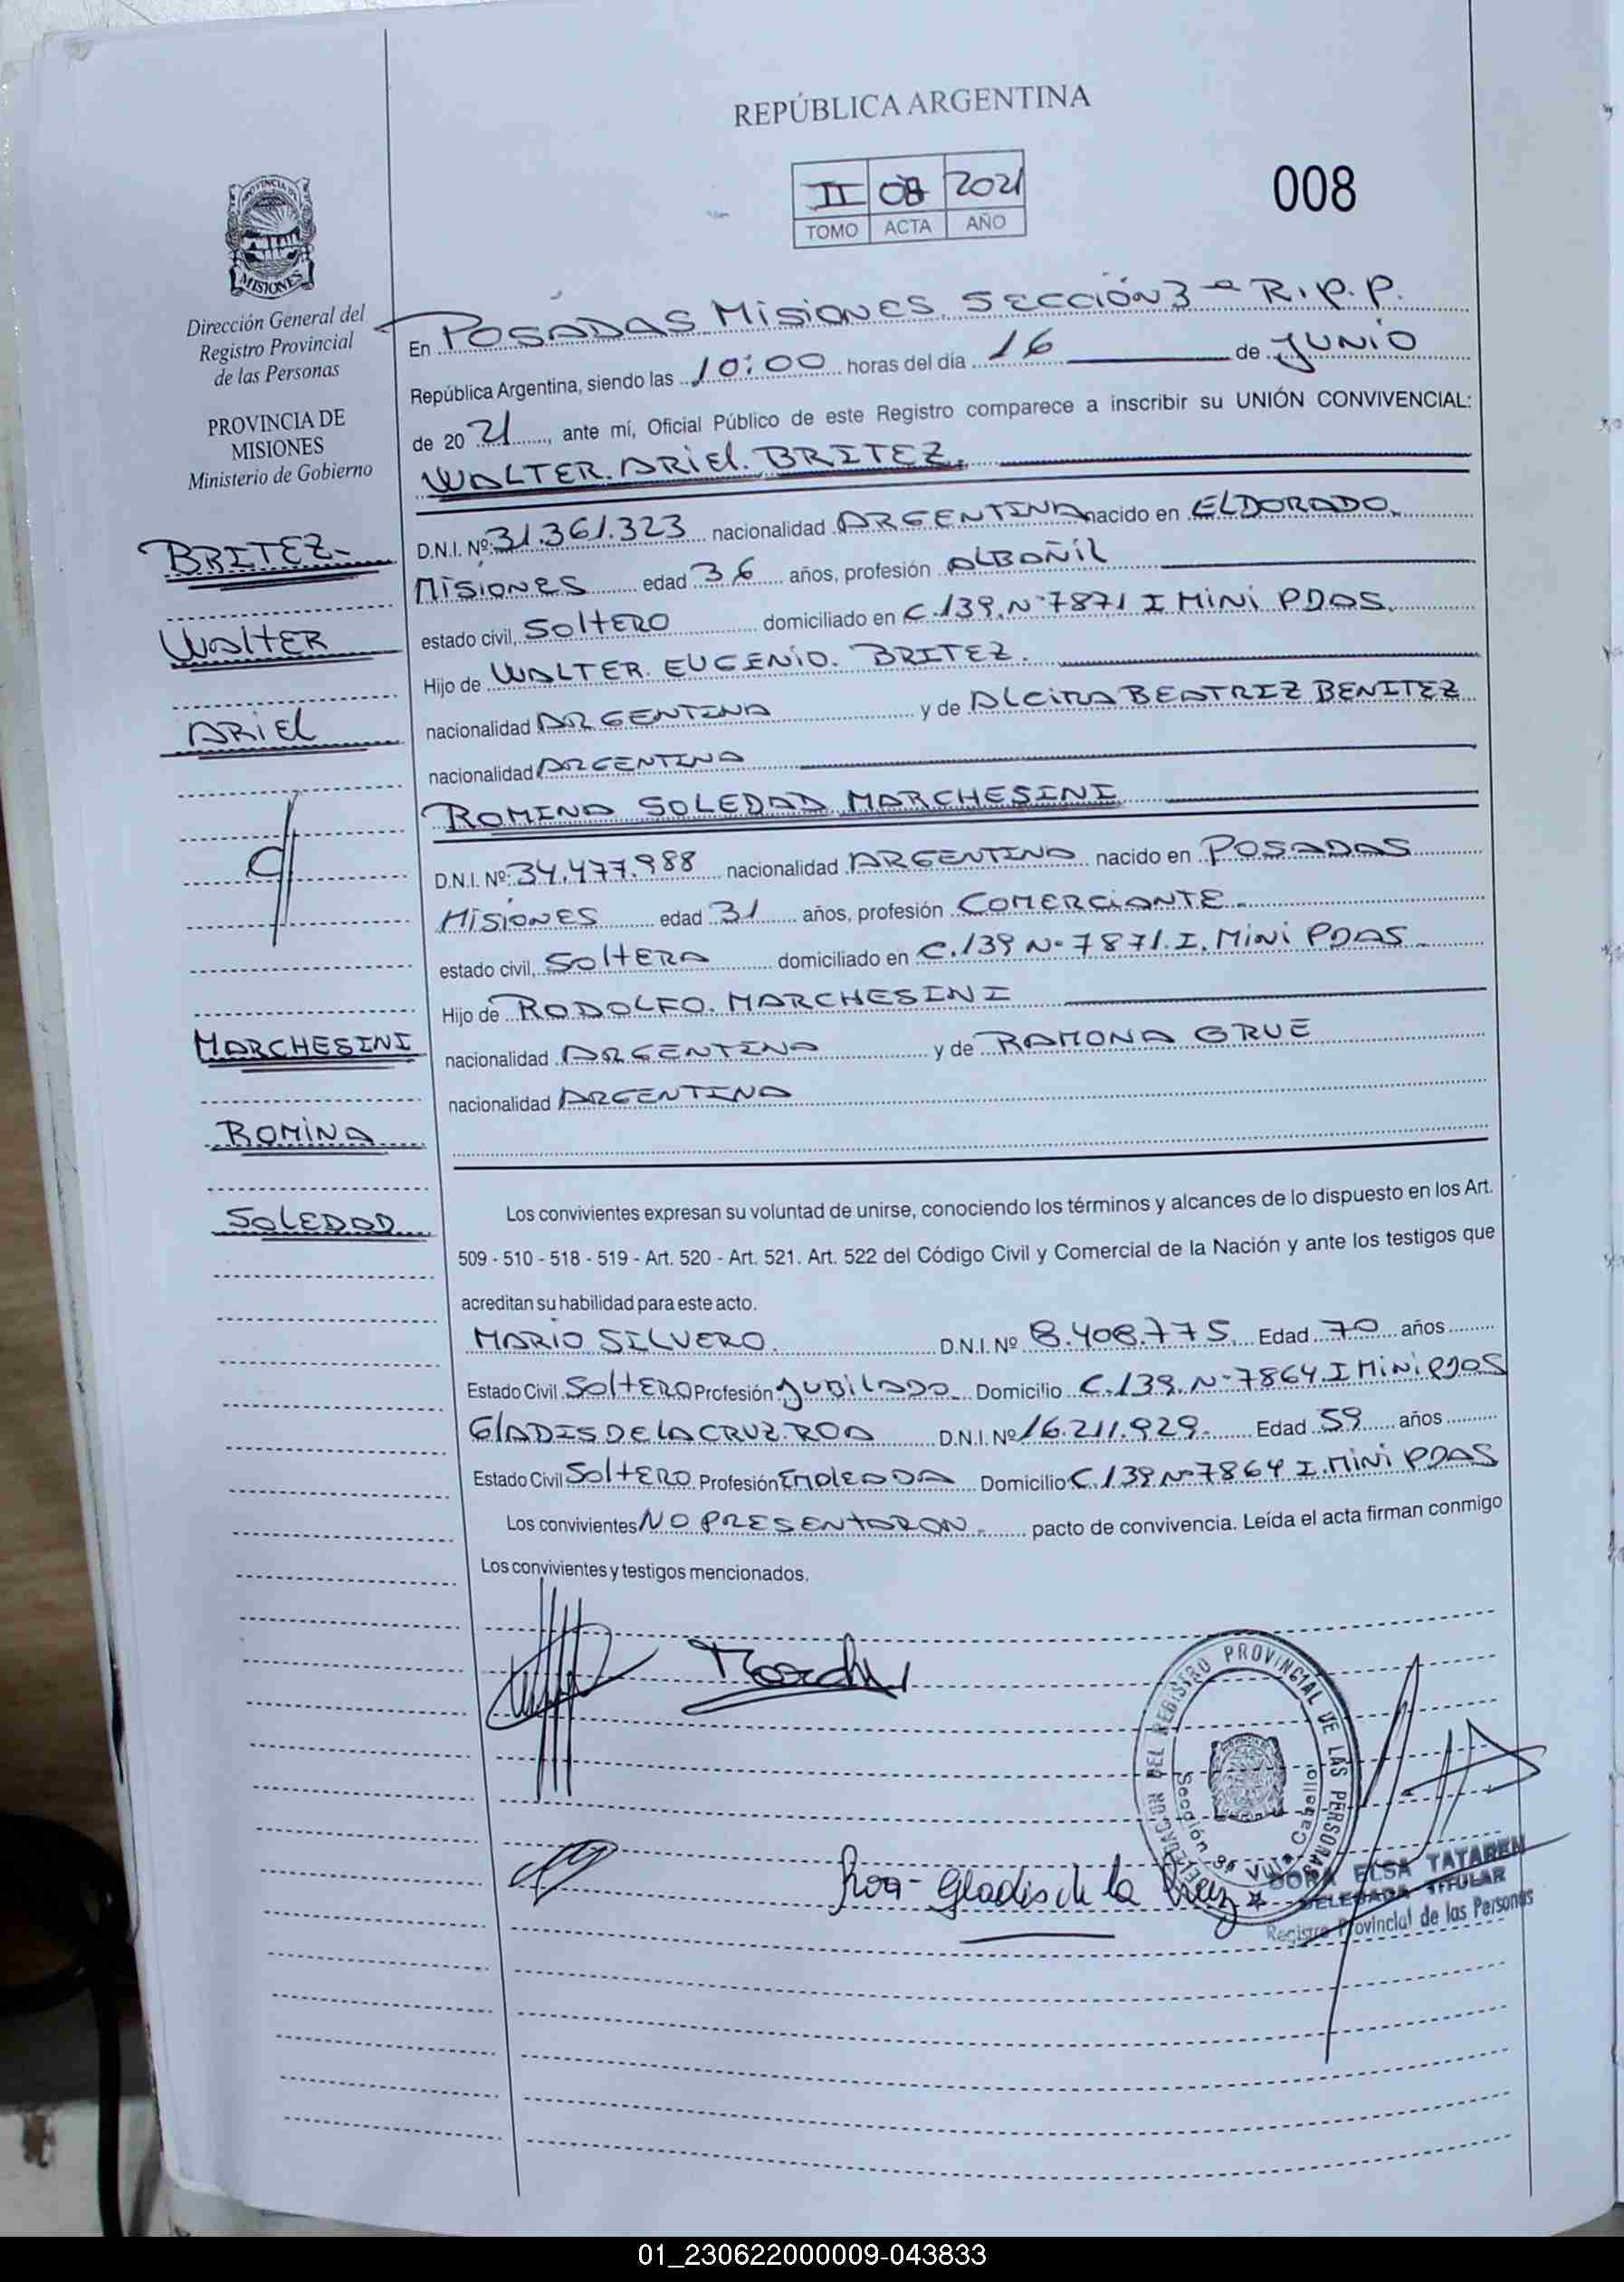 REPÚBLICA ARGENTINA
II 08 2021
TOMO ACTA AÑO
008
PROVINCIA DE
MISIONES
Dirección General del
Registro Provincial
de las Personas
PROVINCIA DE
MISIONES
Ministerio de Gobierno
BRITEZ-
WALTER
ARIEL
MARCHESINI
ROMINA
SOLEDAD
En POSADAS MISIONES SECCIÓN 3ª R.P.P.
República Argentina, siendo las 10:00 horas del día 16 de JUNIO
de 2021, ante mí, Oficial Público de este Registro comparece a inscribir su UNIÓN CONVIVENCIAL:
WALTER ARIEL BRITEZ.
D.N.I. Nº 31.361.323 nacionalidad ARGENTINA nacido en ELDORADO
MISIONES edad 36 años, profesión ALBAÑIL
estado civil, SOLTERO domiciliado en C.139 Nº 7871 I MINI PDAS.
Hijo de WALTER EUGENIO BRITEZ.
nacionalidad ARGENTINA y de ALCIRA BEATRIZ BENITEZ
nacionalidad ARGENTINA
ROMINA SOLEDAD MARCHESINI
D.N.I. Nº 34.477.988 nacionalidad ARGENTINA nacido en POSADAS
MISIONES edad 31 años, profesión COMERCIANTE
estado civil, SOLTERA domiciliado en C.139 Nº 7871. I. MINI PDAS
Hijo de RODOLFO MARCHESINI
nacionalidad ARGENTINA y de RAMONA GRUE
nacionalidad ARGENTINA
Los convivientes expresan su voluntad de unirse, conociendo los términos y alcances de lo dispuesto en los Art.
509 - 510 - 518 - 519 - Art. 520 - Art. 521. Art. 522 del Código Civil y Comercial de la Nación y ante los testigos que
acreditan su habilidad para este acto.
MARIO SILVERO D.N.I. Nº 8.408.775 Edad 70 años
Estado Civil SOLTERO Profesión JUBILADO Domicilio C.139 Nº 7864 I MINI PDAS
GLADIS DE LA CRUZ ROA D.N.I. Nº 16.211.929 Edad 59 años
Estado Civil SOLTERO Profesión EMPLEADA Domicilio C.139 Nº 7864 I. MINI PDAS
Los convivientes NO PRESENTARON pacto de convivencia. Leída el acta firman conmigo
Los convivientes y testigos mencionados.
DELEGACIÓN DEL REGISTRO PROVINCIAL DE LAS PERSONAS
Sección 3ª Villa Cabello
Roa - Gladis de la Cruz
DORA ELSA TATAREN
DELEGADA TITULAR
Registro Provincial de las Personas
01_230622000009-043833